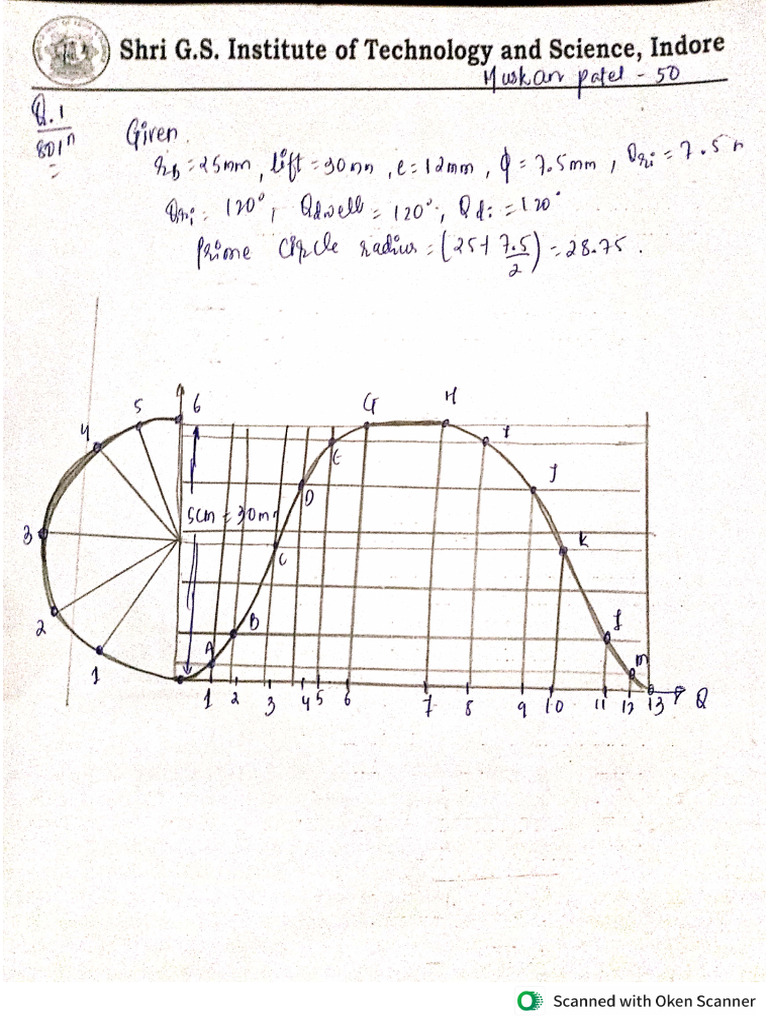 Shri G.S. Institute of Technology and Science, Indore
Muskan Patel - 50
Q.1
Given
rb = 25mm, lift = 30mm, e = 12mm, ϕ = 7.5mm, = 7.5
120°, θdwell = 120°, = 120°
Prime Circle radius = (25+ 7.5/2) = 28.75.
5 6 G H
4 I
E
J
D
5cm = 30mm
3 K
C
2 B
1 A m
1 2 3 4 5 6 7 8 9 10 11 12 13 Q
Scanned with Oken Scanner